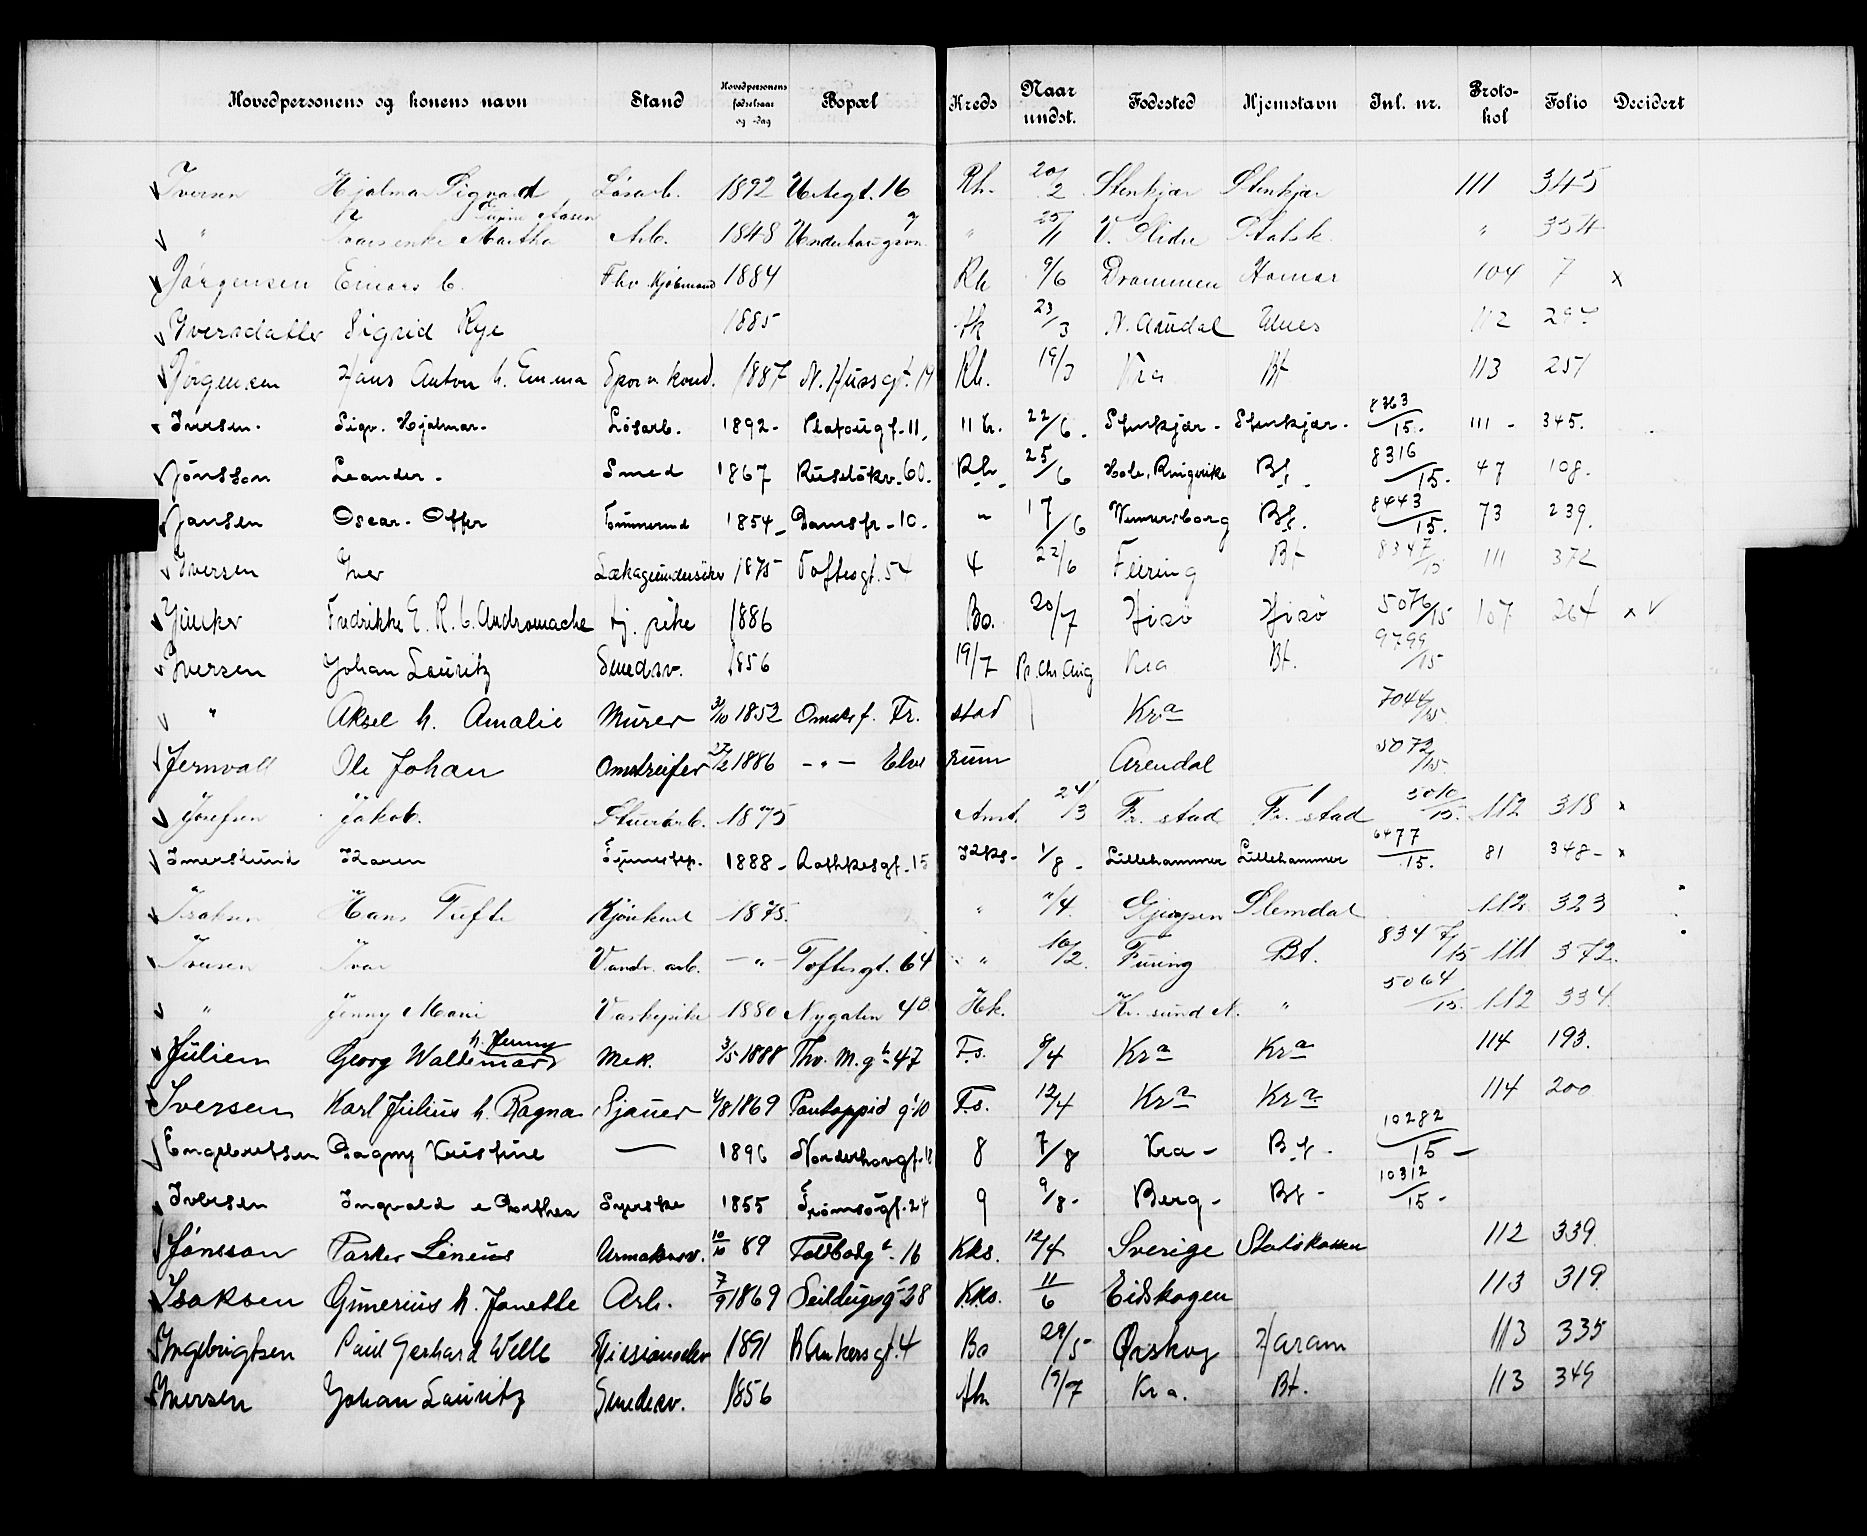 Hovedpersonens og konens navn Stand Hovedpersonens fødselsaar og -dag Bopæl Kreds Naar undst. Fødested Hjemstavn Inl. nr. Protokol Folio Decidert
Iversen Hjalmar Sigvard Løsarb. 1892 Urtegt. 16 Rh. 20/2 Stenkjær Stenkjær 111 345
" Martha Arb. 1848 " 25/1 V. Slidre Statsk. " 334
Jørgensen Einars C. Fhv. Kjøbmand 1884 Rh 9/6 Drammen Hamar 104 7 x
Iversdatter Sigrid Rye 1885 23/3 N. Aurdal 112
Jørgensen Hans Anton h. Emma Sporv. kond. 1887 N. Jussgt. 14 Rh. 19/3 Kra Bt 113 251
Iversen. Sigv. Hjalmar. Løsarb. 1892 - Platougt. 11. 11 Kr. 22/6. Stenkjær - Stenkjær - 8363/15. 111 - 345.
Jønsson Leander. Smed 1867 Ruseløkv. 60. Rh. 25/6 Hole, Ringerike Bt. 8316/15. 47 108.
Jansen Oscar. Otter Tømmermd 1854 - Damsfr - 10. " 17/6 Wenersborg Bt. 8443/15. 73 239.
Iversen Iver 1875 Toftesgt. 54 4 22/6 Feiring Bt 8347/15 111 372
Juncker Fredrikke E. R. C. Andromache tj. pike 1886 Bo. 20/7 Hisø Hisø 5076/15 107 264 x v
Iversen Johan Lauritz Smedsv. 1856 19/7 Pr. Chr. Aug Kra Bt. 9799/15
" Aksel h. Amalie Murer 3/10 1852 Omstr. Fr. stad Kra 7044/15
Jernvall Ole Johan Omstreifer 27/2 1886 - " - Elve rum Arendal 5072/15
Josefsen Jakob. 1875 Amt. 24/3 Fr. stad Fr. stad 5010/15. 112 318 x
Imerslund Karen Tjenestep. 1888 - Rathkesgt. 15 Kks - 1/8 - Lillehammer Lillehammer 6477/15. 81 348 - x
Isaksen Hans Tufte Kjørekarl 1875. " /4. Gjerpen Slemdal 112 323
Iversen Ivar Vandv. arb. - " - Toftesgt. 64 " 10/2 Feiring Bt. 8347/15 111 372.
" Jenny Marie Vaskepike 1880 Nygaten 40 Hk. Kr. sund N. " 5064/15. 112 334.
Julien Georg Waldemar h. Jenny Mek. 3/5 1888 Thv. M. gt 47 F.s. 8/4 Kra Kra 114 193.
Iversen Karl Julius h. Ragna Sjauer /8 1869 Pontoppid. g. 10 F.s. 12/4 Kra Kra 114 200
Engebretsen Dagny Kristine — 1896 Norderhovgt. 18 8 7/8 Kra - Bt. 10282/15 -
Iversen Ingvald e Dorthea 1855 Tromsøgt. 24 9 9/8 - Berg - Bt - 10312/15 -
Jönsson Parker Lineus Urmakersv. 10/10 89 Toldbodgt. 16 Kks. 12/4 Sverige Statskassen 112 339.
Isaksen Gunerius h. Janette Arb. 7/9 1869 Seildugsgt 28 Kks. 11/6 Eidskogen 113 319.
Ingebrigtsen Paul Gerhard Welle Misjonselev 1891 B. Ankersgt. 4 Bo 29/5 Ørskog Haram 113 335
Iversen Johan Lauritz Smedesv. 1856 19/7 Kra. Bt. 113 349